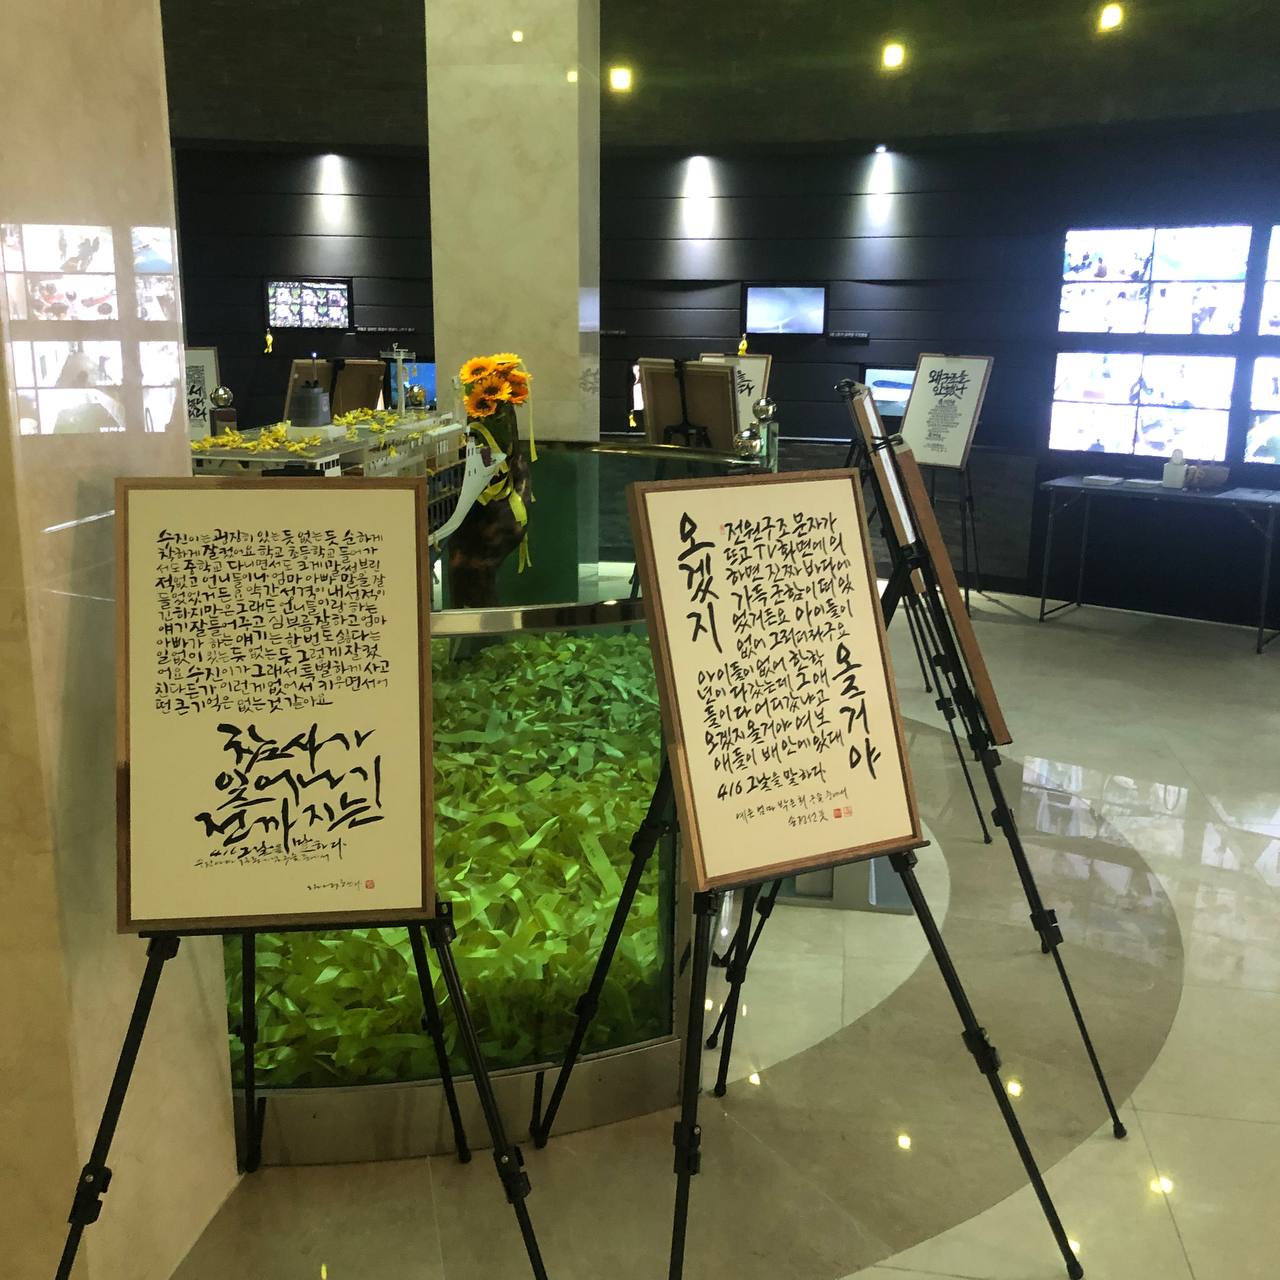 수진이는 굉장히 있는 듯 없는 듯 순하게
착하게 잘 컸어요 학교 초등학교 들어가
서도 중학교 다니면서도 크게 말썽부린
적없고 언니들이나 엄마 아빠 말을 잘
들었었거든요 약간 성격이 내성적이
긴하지만은 그래도 언니들이랑 하는
얘기 잘 들어주고 심부름 잘하고 엄마
아빠가 하는 얘기는 한번도 싫다는
일없이 있는듯 없는듯 그렇게 잘 컸
어요 수진이가 그래서 특별하게 사고
치다든가 이런게 없어서 키우면서 어
떤 큰 기억은 없는것 같아요
참사가
일어나기
전까지는!
416 그날을 말하다
오겠지
전원구조 문자가
뜨고 TV화면에 의
하면 진짜 바다에
가득 군함이 떠 있
었거든요 아이들이
없어 그러더라구요
아이들이 없어 한 학
년이 다 갔는데 그 애
들이 다 어디갔냐고
오겠지 올거야 여보
애들이 배 안에 있대
올거야
416 그날을 말하다
예은 엄마 박은희 구술 중에서
왜 구조를
안 했나